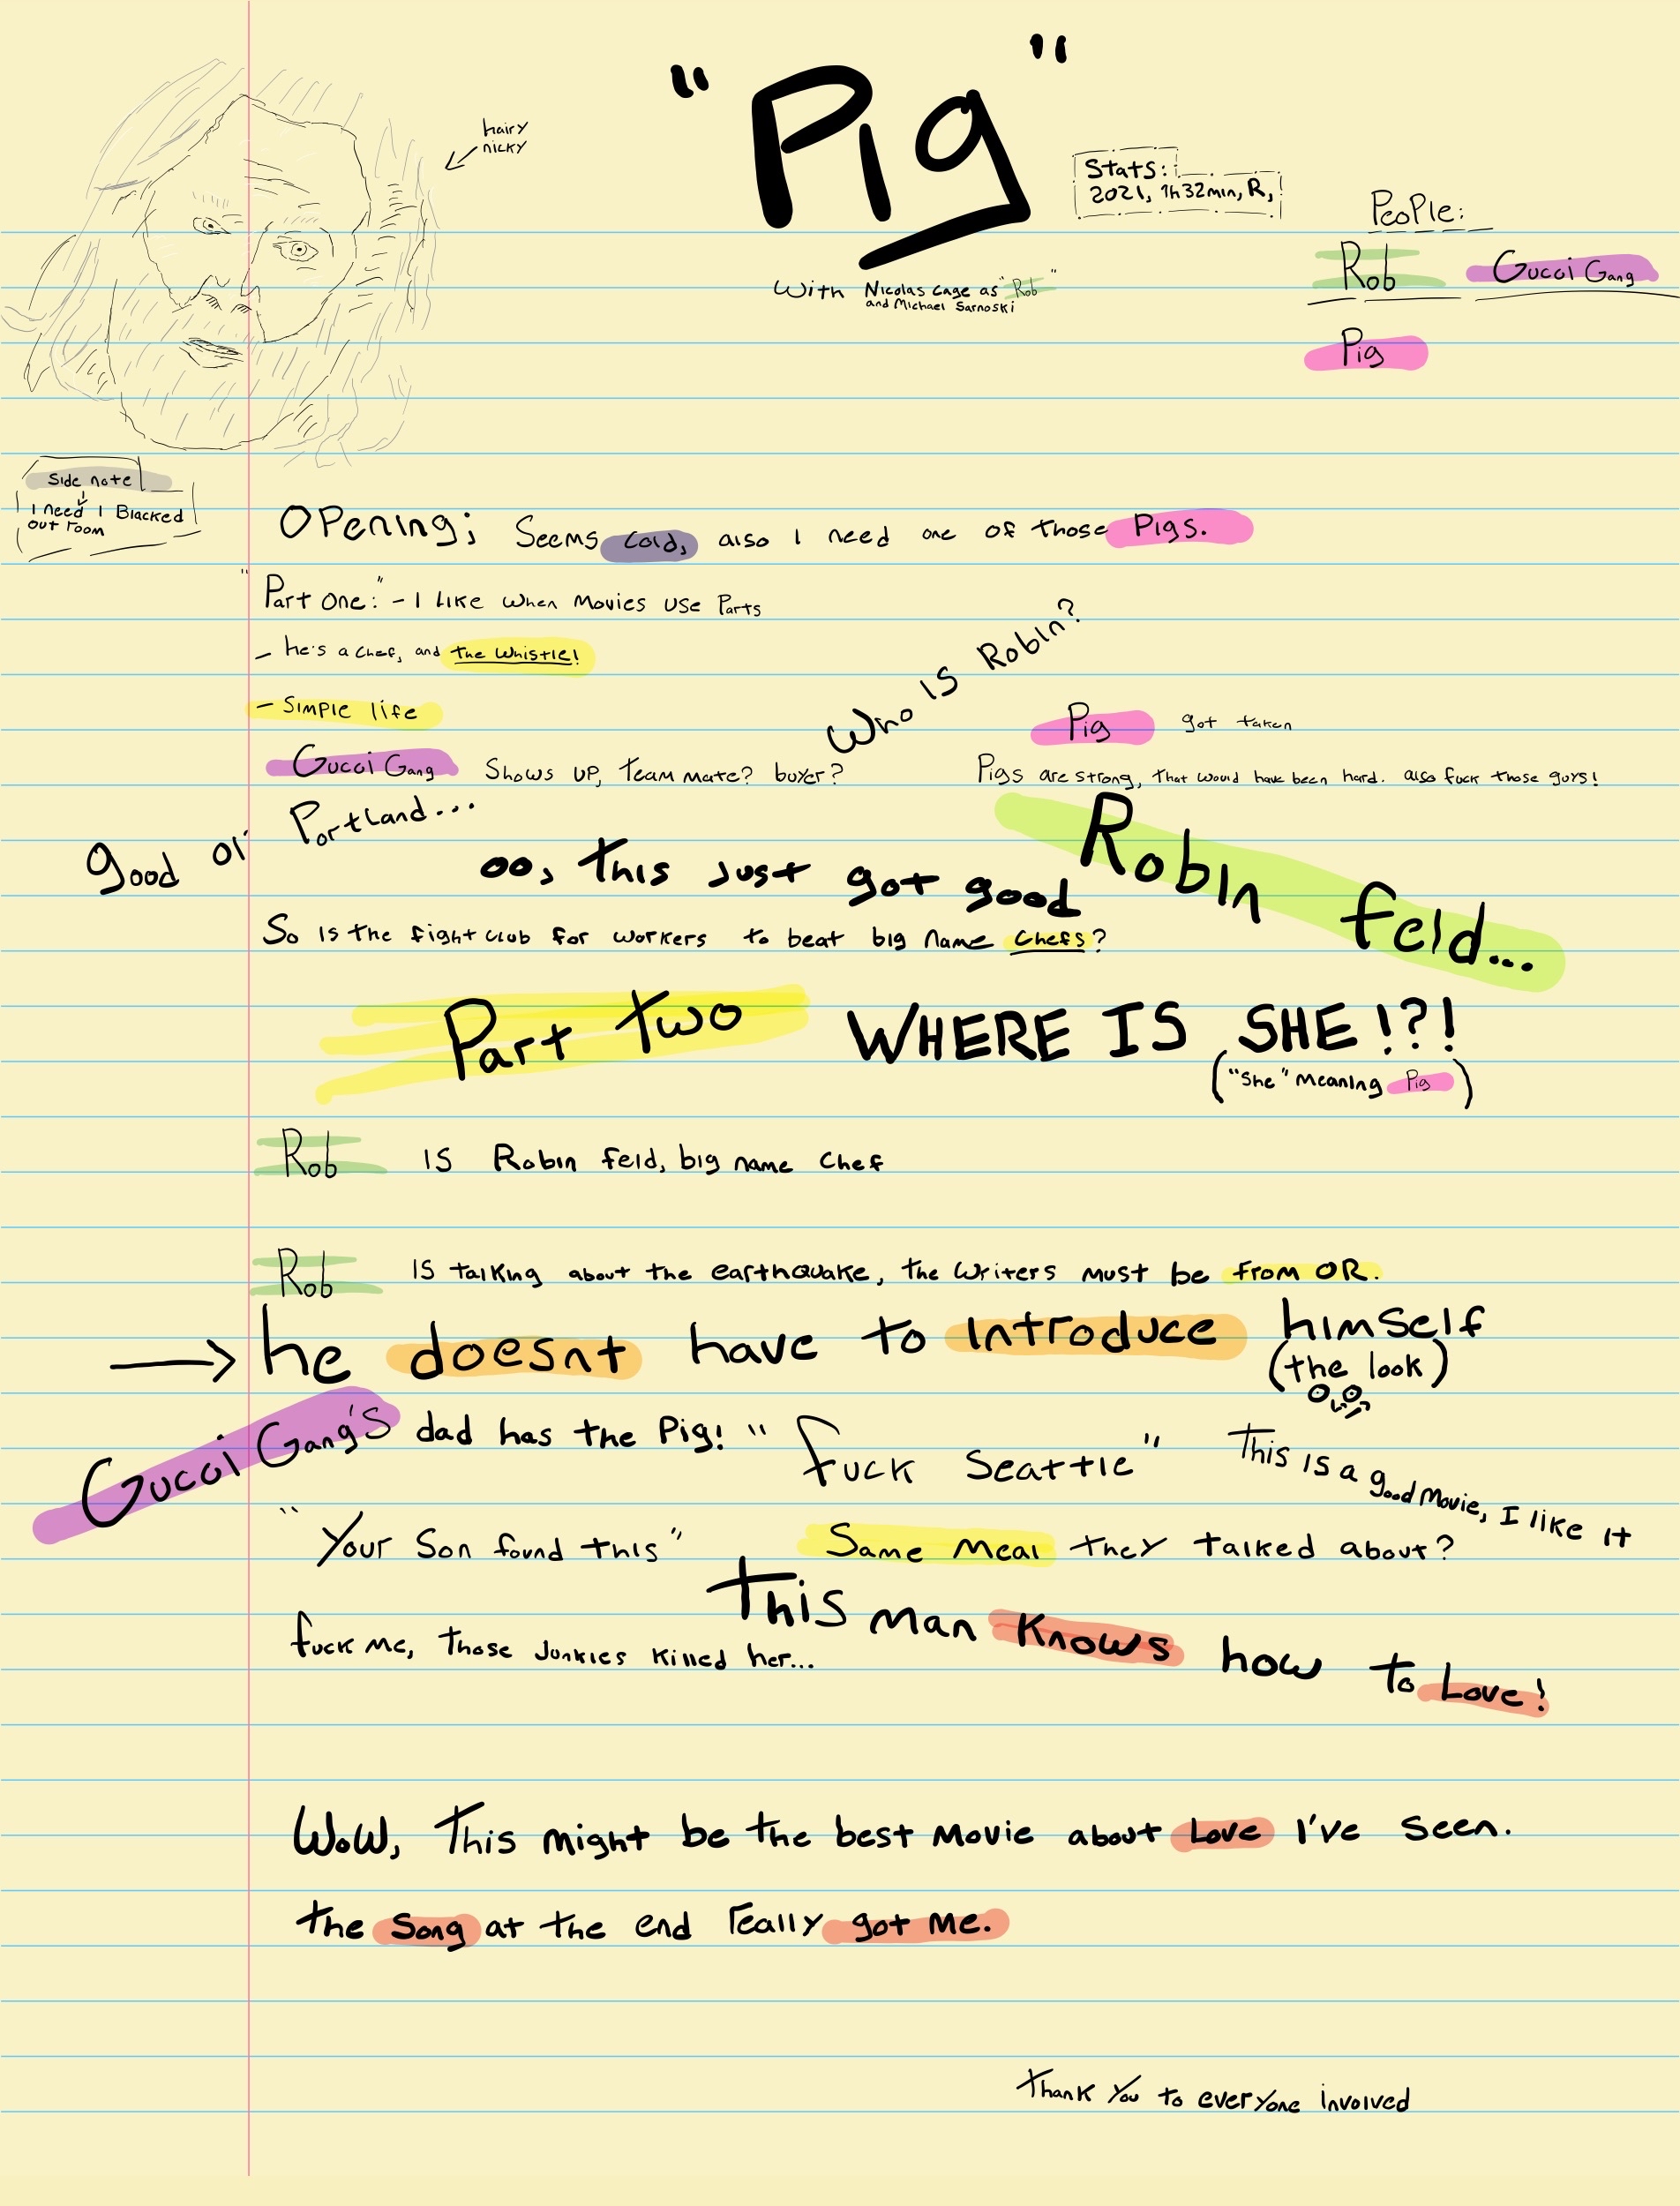 "Pig"
hairy
nicky
Stats:
2021, 1h32min, R,
With Nicolas Cage as "Rob"
and Michael Sarnoski
People:
Rob Gucci Gang
Pig
Side note
I need 1 Blacked
out room
Opening; Seems cold, also I need one of those Pigs.
"Part One:" - I like when movies use Parts
- he's a chef, and the whistle!
- Simple life
Who is Robin?
Pig got taken
Gucci Gang Shows up, teammate? buyer?
Pigs are strong, that would have been hard. also fuck those guys!
good ol' Portland...
oo, this just got good
Robin feld...
So is the fight club for workers to beat big name chefs?
Part two WHERE IS SHE!?!
("She" meaning Pig)
Rob is Robin feld, big name chef
Rob is talking about the earthquake, the writers must be from OR.
→ he doesnt have to introduce himself
(the look)
Gucci Gang's dad has the Pig! "fuck Seattle"
This is a good movie, I like it
"Your Son found this" Same meal they talked about?
fuck me, those junkies killed her...
This man knows how to Love!
Wow, This might be the best movie about Love I've seen.
the song at the end really got me.
Thank you to everyone involved